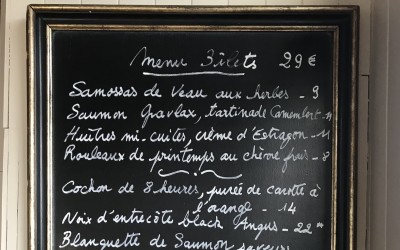 Menu 3ilets 29€
Samossas de Veau aux herbes - 9
Saumon Gravlax, tartinade Camembert -
Huîtres mi-cuites, crème d'Estragon - 11
Rouleaux de printemps au chèvre frais - 8
Cochon de 8 heures, purée de carotte à
l'orange - 14
Noix d'entrecôte black Angus - 22
Blanquette de Saumon